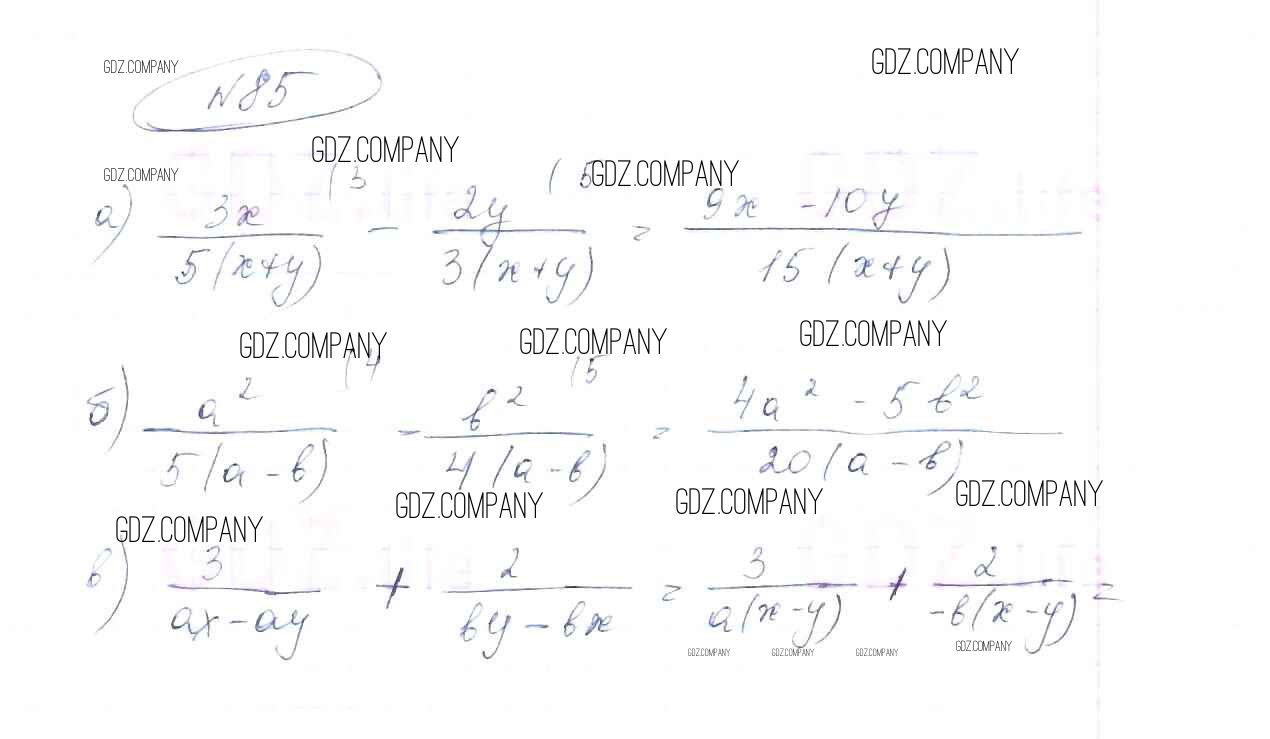 GDZ.COMPANY GDZ.COMPANY
N85
GDZ.COMPANY
GDZ.COMPANY GDZ.COMPANY
а) 3x/5(x+y) (3 - 2y/3(x+y) (5 = 9x - 10y/15(x+y)
GDZ.COMPANY GDZ.COMPANY GDZ.COMPANY
б) a²/5(a-в) (4 - в²/4(a-в) (5 = 4a² - 5в²/20(a-в)
GDZ.COMPANY GDZ.COMPANY GDZ.COMPANY GDZ.COMPANY
в) 3/ax-ay + 2/вy-вx = 3/a(x-y) + 2/-в(x-y) =
GDZ.COMPANY GDZ.COMPANY GDZ.COMPANY GDZ.COMPANY